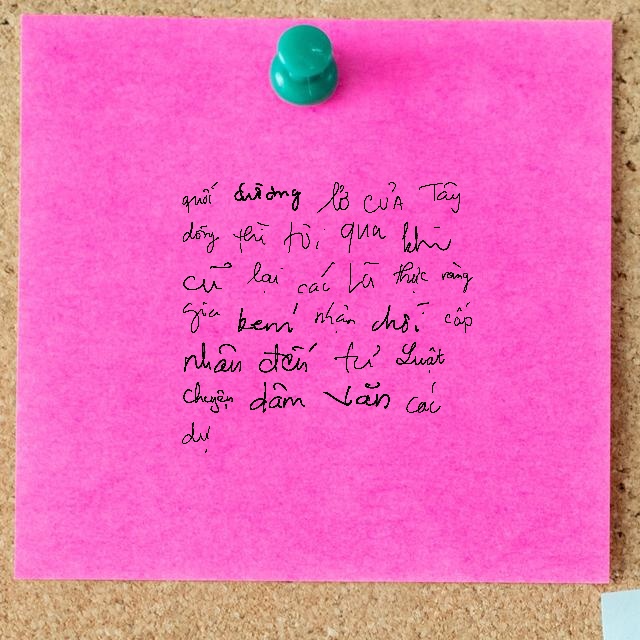 quối đường lở CỦA Tây
động thì tôi qua khi
cũ lại các là thực ràng
gia kem nhận chối cấp
nhân đến tư Luật
chuyện dâm Văn các
dự